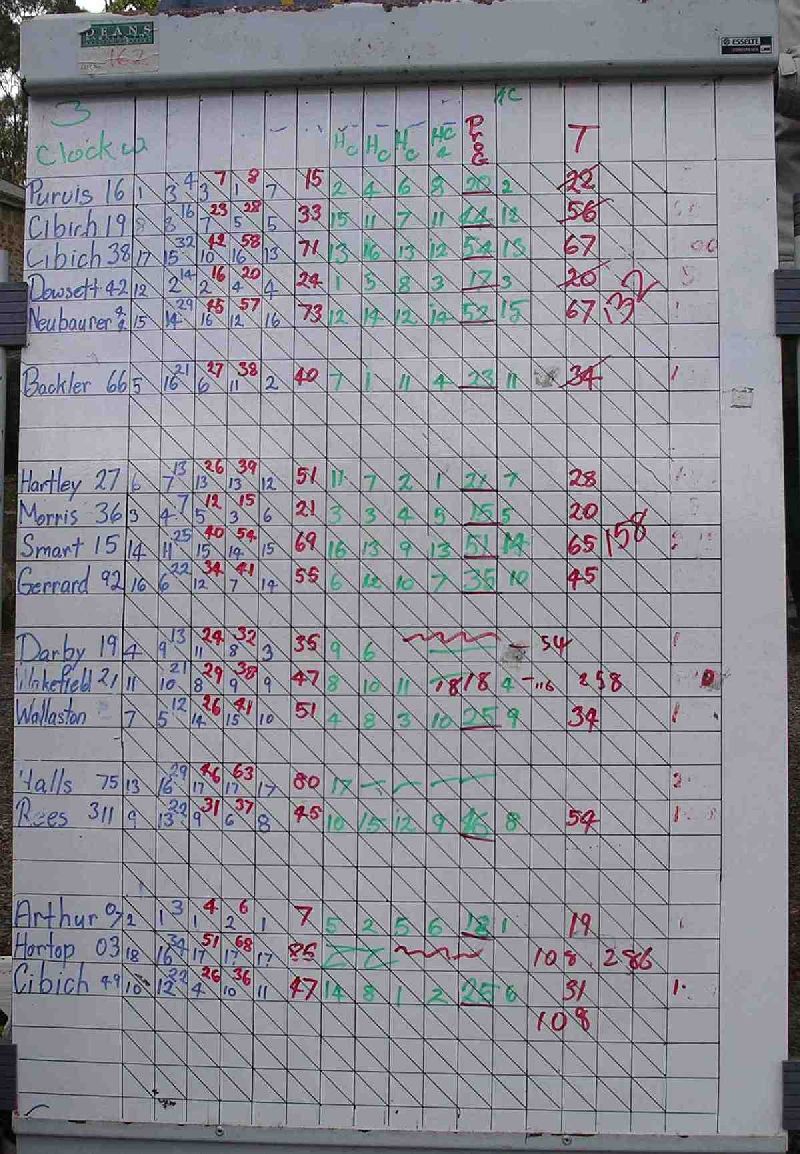 DEANS
162
ESSELTE
3
HC
Clock
HC HC HC HC PROG T
Purvis 16 1 3 4 3 7 1 8 7 15 2 4 6 8 20 2 22
Cibich 19 8 16 7 23 5 28 5 33 15 11 7 11 44 12 56
Cibich 38 17 15 32 10 42 16 58 13 71 13 16 13 12 54 13 67
Dowsett 42 12 2 14 2 16 4 20 4 24 1 5 8 3 17 3 20 132
Neubaurer 15 14 29 16 45 12 57 16 73 12 14 12 14 52 15 67
Backler 66 5 16 21 6 27 11 38 2 40 7 1 11 4 23 11 34
Hartley 27 6 7 13 13 26 13 39 12 51 11 7 2 1 21 7 28
Morris 36 3 4 7 5 12 3 15 6 21 3 3 4 5 15 5 20
Smart 15 14 11 25 15 40 14 54 15 69 16 13 9 13 51 14 65 158
Gerrard 92 16 6 22 12 34 7 41 14 55 6 12 10 7 35 10 45
Darby 19 4 9 13 11 24 8 32 3 35 9 6 54
Wakefield 21 11 10 21 8 29 9 38 9 47 8 10 11 18 18 4 116 258
Wallaston 7 5 12 14 26 15 41 10 51 4 8 3 10 25 9 34
Halls 75 13 16 29 17 46 17 63 17 80 17
Rees 311 9 13 22 9 31 6 37 8 45 10 15 12 9 46 8 54
Arthur 07 2 1 3 1 4 2 6 1 7 5 2 5 6 18 1 19
Hortop 03 18 16 34 17 51 17 68 17 85 108 286
Cibich 49 10 12 22 4 26 10 36 11 47 14 8 1 2 25 6 31
108